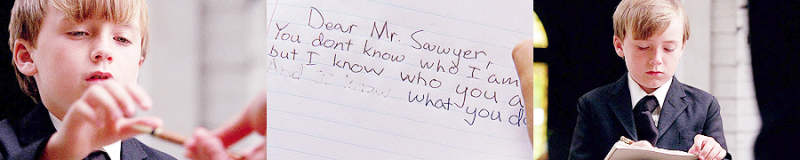 Dear Mr. Sawyer,
You dont know who I am
but I know who you a
And I know what you d